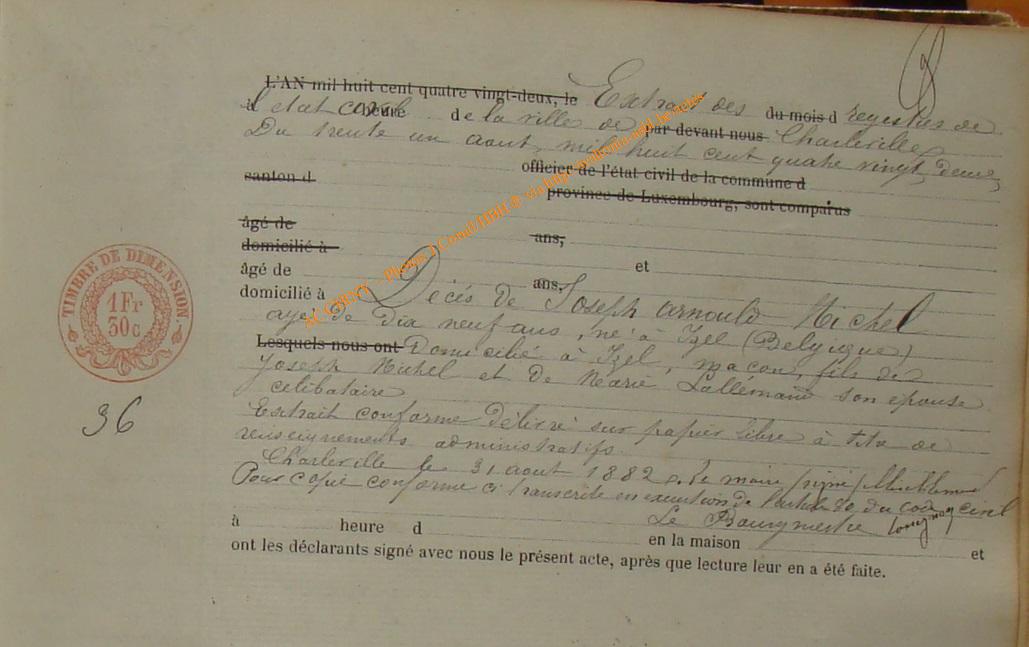 L'AN mil huit cent quatre vingt-deux, le Extrait des du mois d registres de
à l'état civil heure de la ville de par devant nous Charleville
Du trente un aout, mil huit cent quatre vingt deux,
officier de l'état civil de la commune d
canton d
province de Luxembourg, sont comparus
âgé de ans,
domicilié à
âgé de ans, et
domicilié à Décés de Joseph Arnould Michel
agé de dix neuf ans, né à Izel (Belgique)
Lesquels nous ont Domicilié à Izel, maçon, fils de
Joseph Michel et de Marie Lallémand son épouse
celibataire
Extrait conforme délivré sur papier libre à titre de
renseignements administratifs.
Charleville le 31 aout 1882. Le maire (signé)
Pour copie conforme ci transcrite en execution de l'article 80 du code civil
Le Bourgmestre
à heure d en la maison et
ont les déclarants signé avec nous le présent acte, après que lecture leur en a été faite.
TIMBRE DE DIMENSION
1 Fr
30 c
36